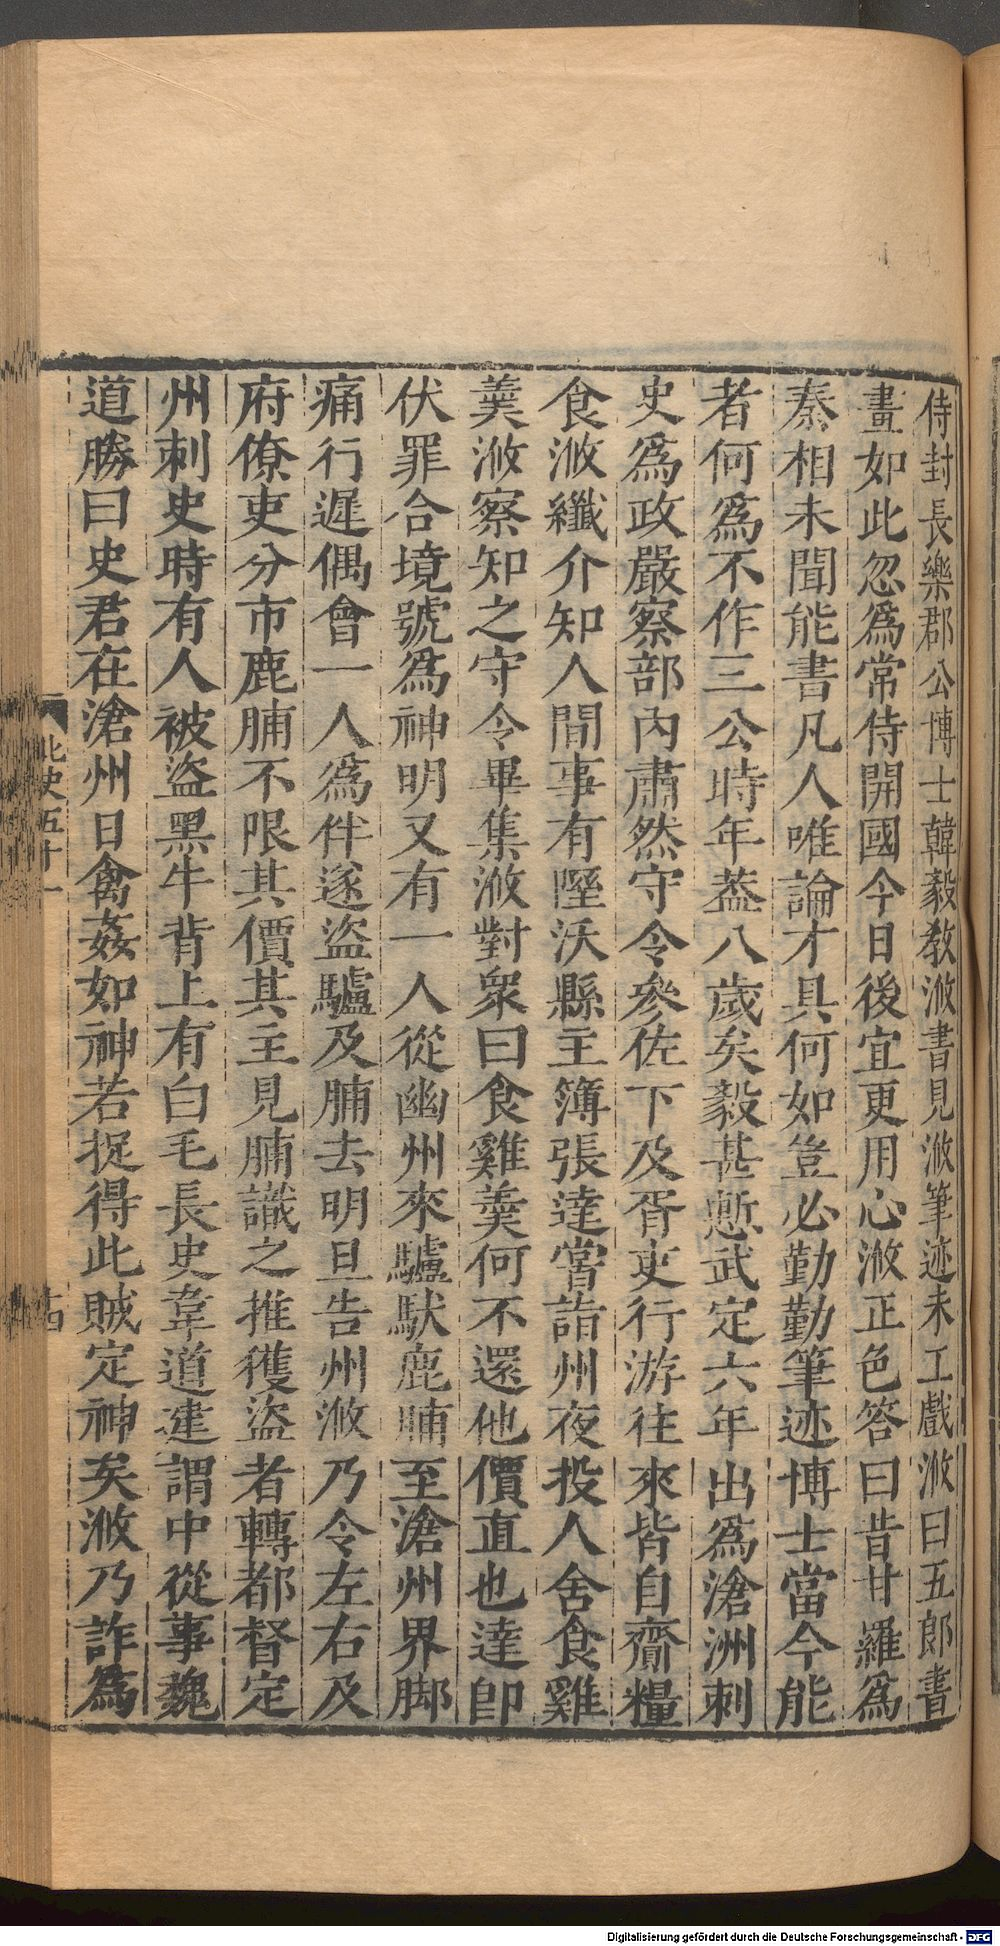 侍封長樂郡公博士韓毅教浟書見浟筆迹未工戲浟曰五郎書
畫如此忽爲常侍開國今日後宜更用心浟正色答曰昔甘羅爲
秦相未聞能書凡人唯論才具何如豈必勤勤筆迹博士當今能
者何爲不作三公時年葢八歲矣毅甚慙武定六年出爲滄洲刺
史爲政嚴察部內肅然守令參佐下及胥吏行游往來皆自齎糧
食浟纖介知人間事有隰沃縣主簿張達嘗詣州夜投人舍食雞
羹浟察知之守令畢集浟對衆曰食雞羹何不還他價直也達卽
伏罪合境號爲神明又有一人從幽州來驢馱鹿脯至滄州界脚
痛行遲偶會一人爲伴遂盜驢及脯去明旦告州浟乃令左右及
府僚吏分市鹿脯不限其價其主見脯識之推獲盜者轉都督定
州刺史時有人被盜黑牛背上有白毛長史韋道建謂中從事魏
道勝曰史君在滄州日禽姦如神若捉得此賊定神矣浟乃詐爲
北史五十一
十四
Digitalisierung gefördert durch die Deutsche Forschungsgemeinschaft - DFG